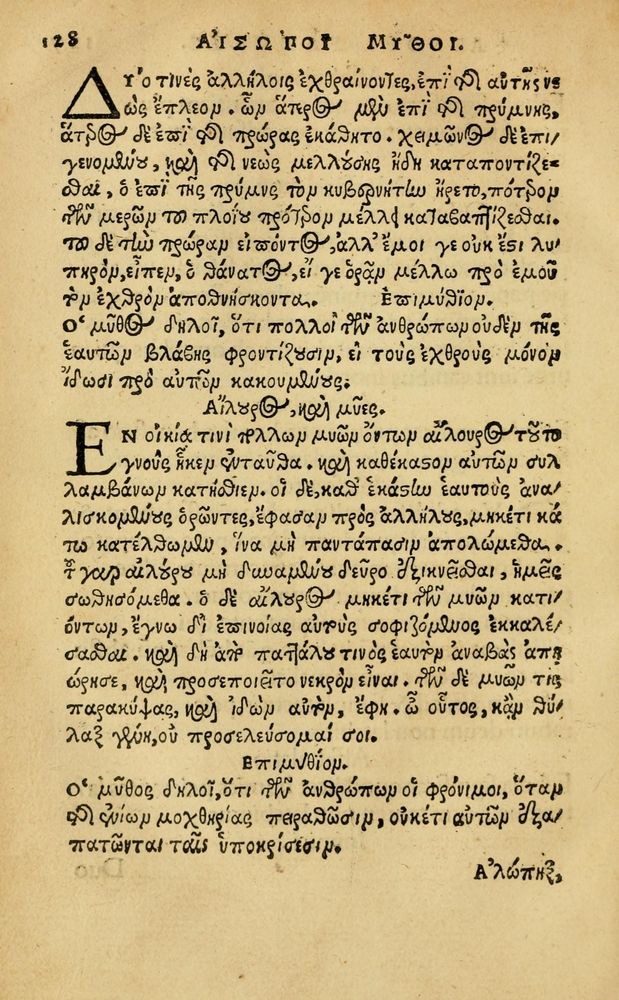 128 ΑΙΣΩΠΟΥ ΜΥ͂ΘΟΙ.
ΔΎο τινὲς ἀλλήλοις ἐχθραίνοντες, ἐπὶ τῆς αὐτῆς νε
ὼς ἔπλεον. ὧν ἅτερος μὲν ἐπὶ τῆς πρύμνης,
ἅτερος δὲ ἐπὶ τῆς πρώρας ἐκάθητο. χειμῶνος δὲ ἐπι/
γενομένου, καὶ τῆς νεὼς μελλούσης ἤδη καταποντίζε=
σθαι, ὁ ἐπὶ τῆς πρύμνης τὸν κυβερνήτην ἤρετο, πότερον
τῶν μερῶν τοῦ πλοίου πρότερον μέλλει καταβαπτίζεσθαι.
τοῦ δὲ τὴν πρώραν εἰπόντος, ἀλλ' ἔμοι γε οὐκ ἔστι λυ/
πηρὸν, εἶπεν, ὁ θάνατος, εἴ γε ὁρᾶν μέλλω πρὸ ἐμοῦ
τὸν ἐχθρὸν ἀποθνήσκοντα. Ἐπιμύθιον.
Ο῾ μῦθος δηλοῖ, ὅτι πολλοὶ τῶν ἀνθρώπων οὐδὲν τῆς
ἑαυτῶν βλάβης φροντίζουσιν, εἰ τοὺς ἐχθροὺς μόνον
ἴδωσι πρὸ αὐτῶν κακουμένους.
Αἴλουρος, καὶ μῦες.
ΕΝ οἰκίᾳ τινὶ πολλῶν μυῶν ὄντων αἴλουρος τοῦτο
γνοὺς ἧκεν ἐνταῦθα. καὶ καθέκαστον αὐτῶν συλ
λαμβάνων κατήσθιεν. οἱ δὲ, καθ' ἑκάστην ἑαυτοὺς ἀνα/
λισκομένους ὁρῶντες, ἔφασαν πρὸς ἀλλήλους, μηκέτι κά
τω κατέλθωμεν, ἵνα μὴ παντάπασιν ἀπολώμεθα.
τοῦ γὰρ αἰλούρου μὴ δυναμένου δεῦρο ἐξικνεῖσθαι, ἡμεῖς
σωθησόμεθα. ὁ δὲ αἴλουρος μηκέτι τῶν μυῶν κατι/
όντων, ἔγνω δι' ἐπινοίας αὐτοὺς σοφιζόμενος ἐκκαλέ/
σασθαι. καὶ δὴ ἀπὸ παττάλου τινὸς ἑαυτὸν ἀναβὰς ἀπῃ
ώρησε, καὶ προσεποιεῖτο νεκρὸν εἶναι. τῶν δὲ μυῶν τις
παρακύψας, καὶ ἰδὼν αὐτὸν, ἔφη. ὦ οὗτος, κἂν θύ/
λαξ γένῃ, οὐ προσελεύσομαί σοι.
Ἐπιμύθιον.
Ο῾ μῦθος δηλοῖ, ὅτι τῶν ἀνθρώπων οἱ φρόνιμοι, ὅταν
τῆς ἐνίων μοχθηρίας πειραθῶσιν, οὐκέτι αὐτῶν ἐξα/
πατῶνται ταῖς ὑποκρίσεσιν.
Ἀλώπηξ,